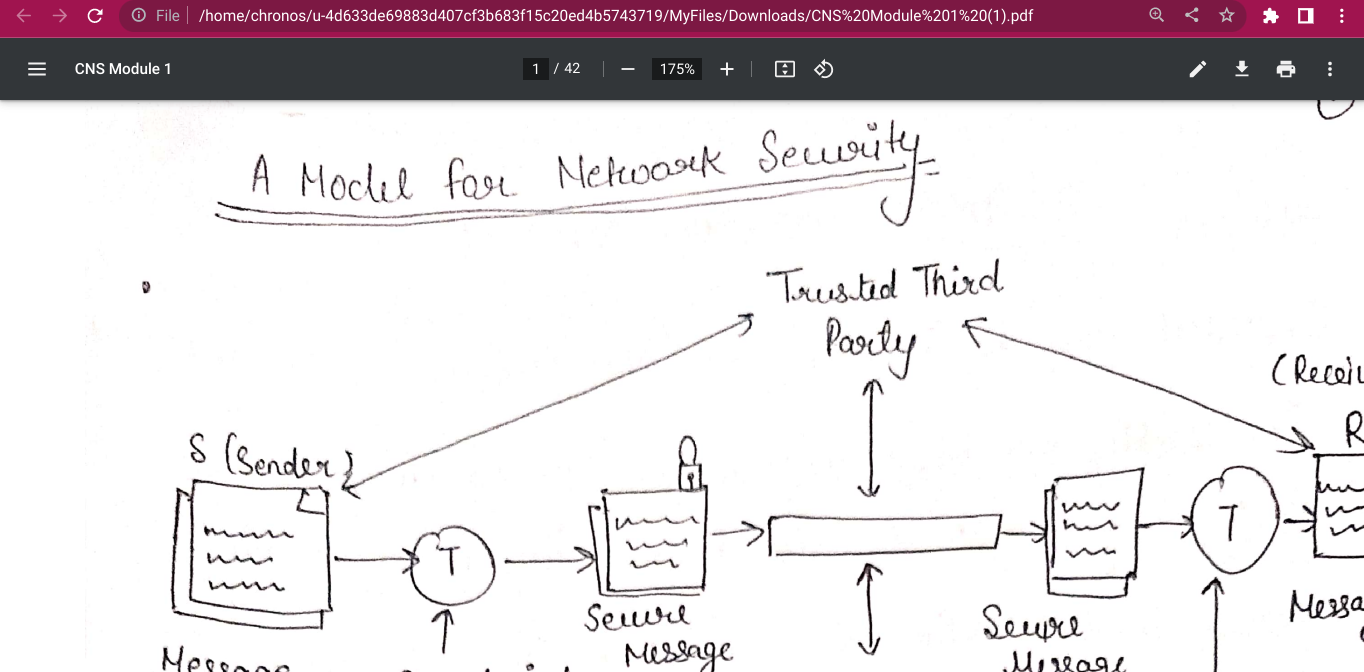 File /home/chronos/u-4d633de69883d407cf3b683f15c20ed4b5743719/MyFiles/Downloads/CNS%20Module%201%20(1).pdf
CNS Module 1
1 / 42
175%
A Model for Network Security
Trusted Third
Party
(Recei
R
S (Sender)
T
T
Secure
Message
Secure
Message
Messa
Message